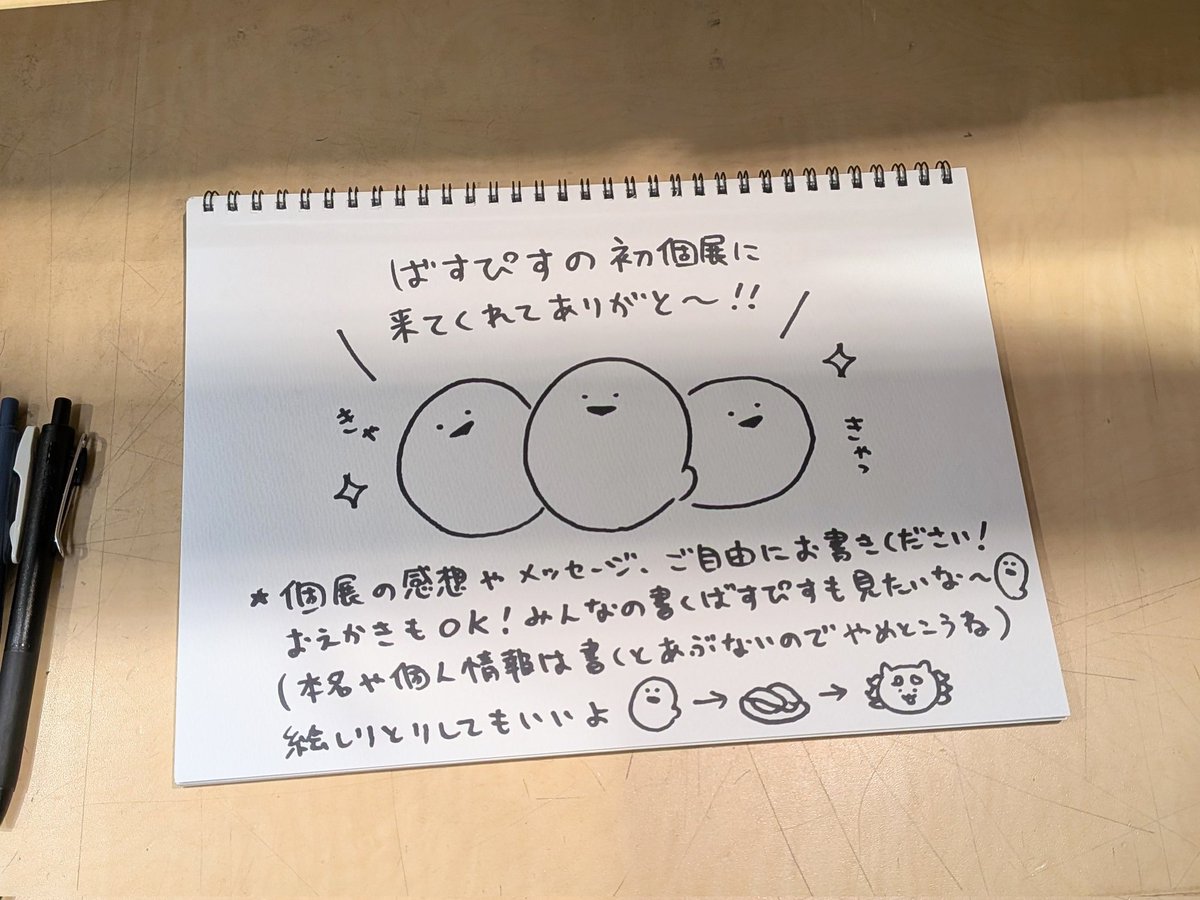 ばすぴすの初個展に
来てくれてありがと〜!!
きゃ
きゃっ
*個展の感想やメッセージ、ご自由にお書きください!
おえかきもOK!みんなの書くばすぴすも見たいな〜
(本名や個人情報は書くとあぶないのでやめとこうね)
絵しりとりしてもいいよ → →